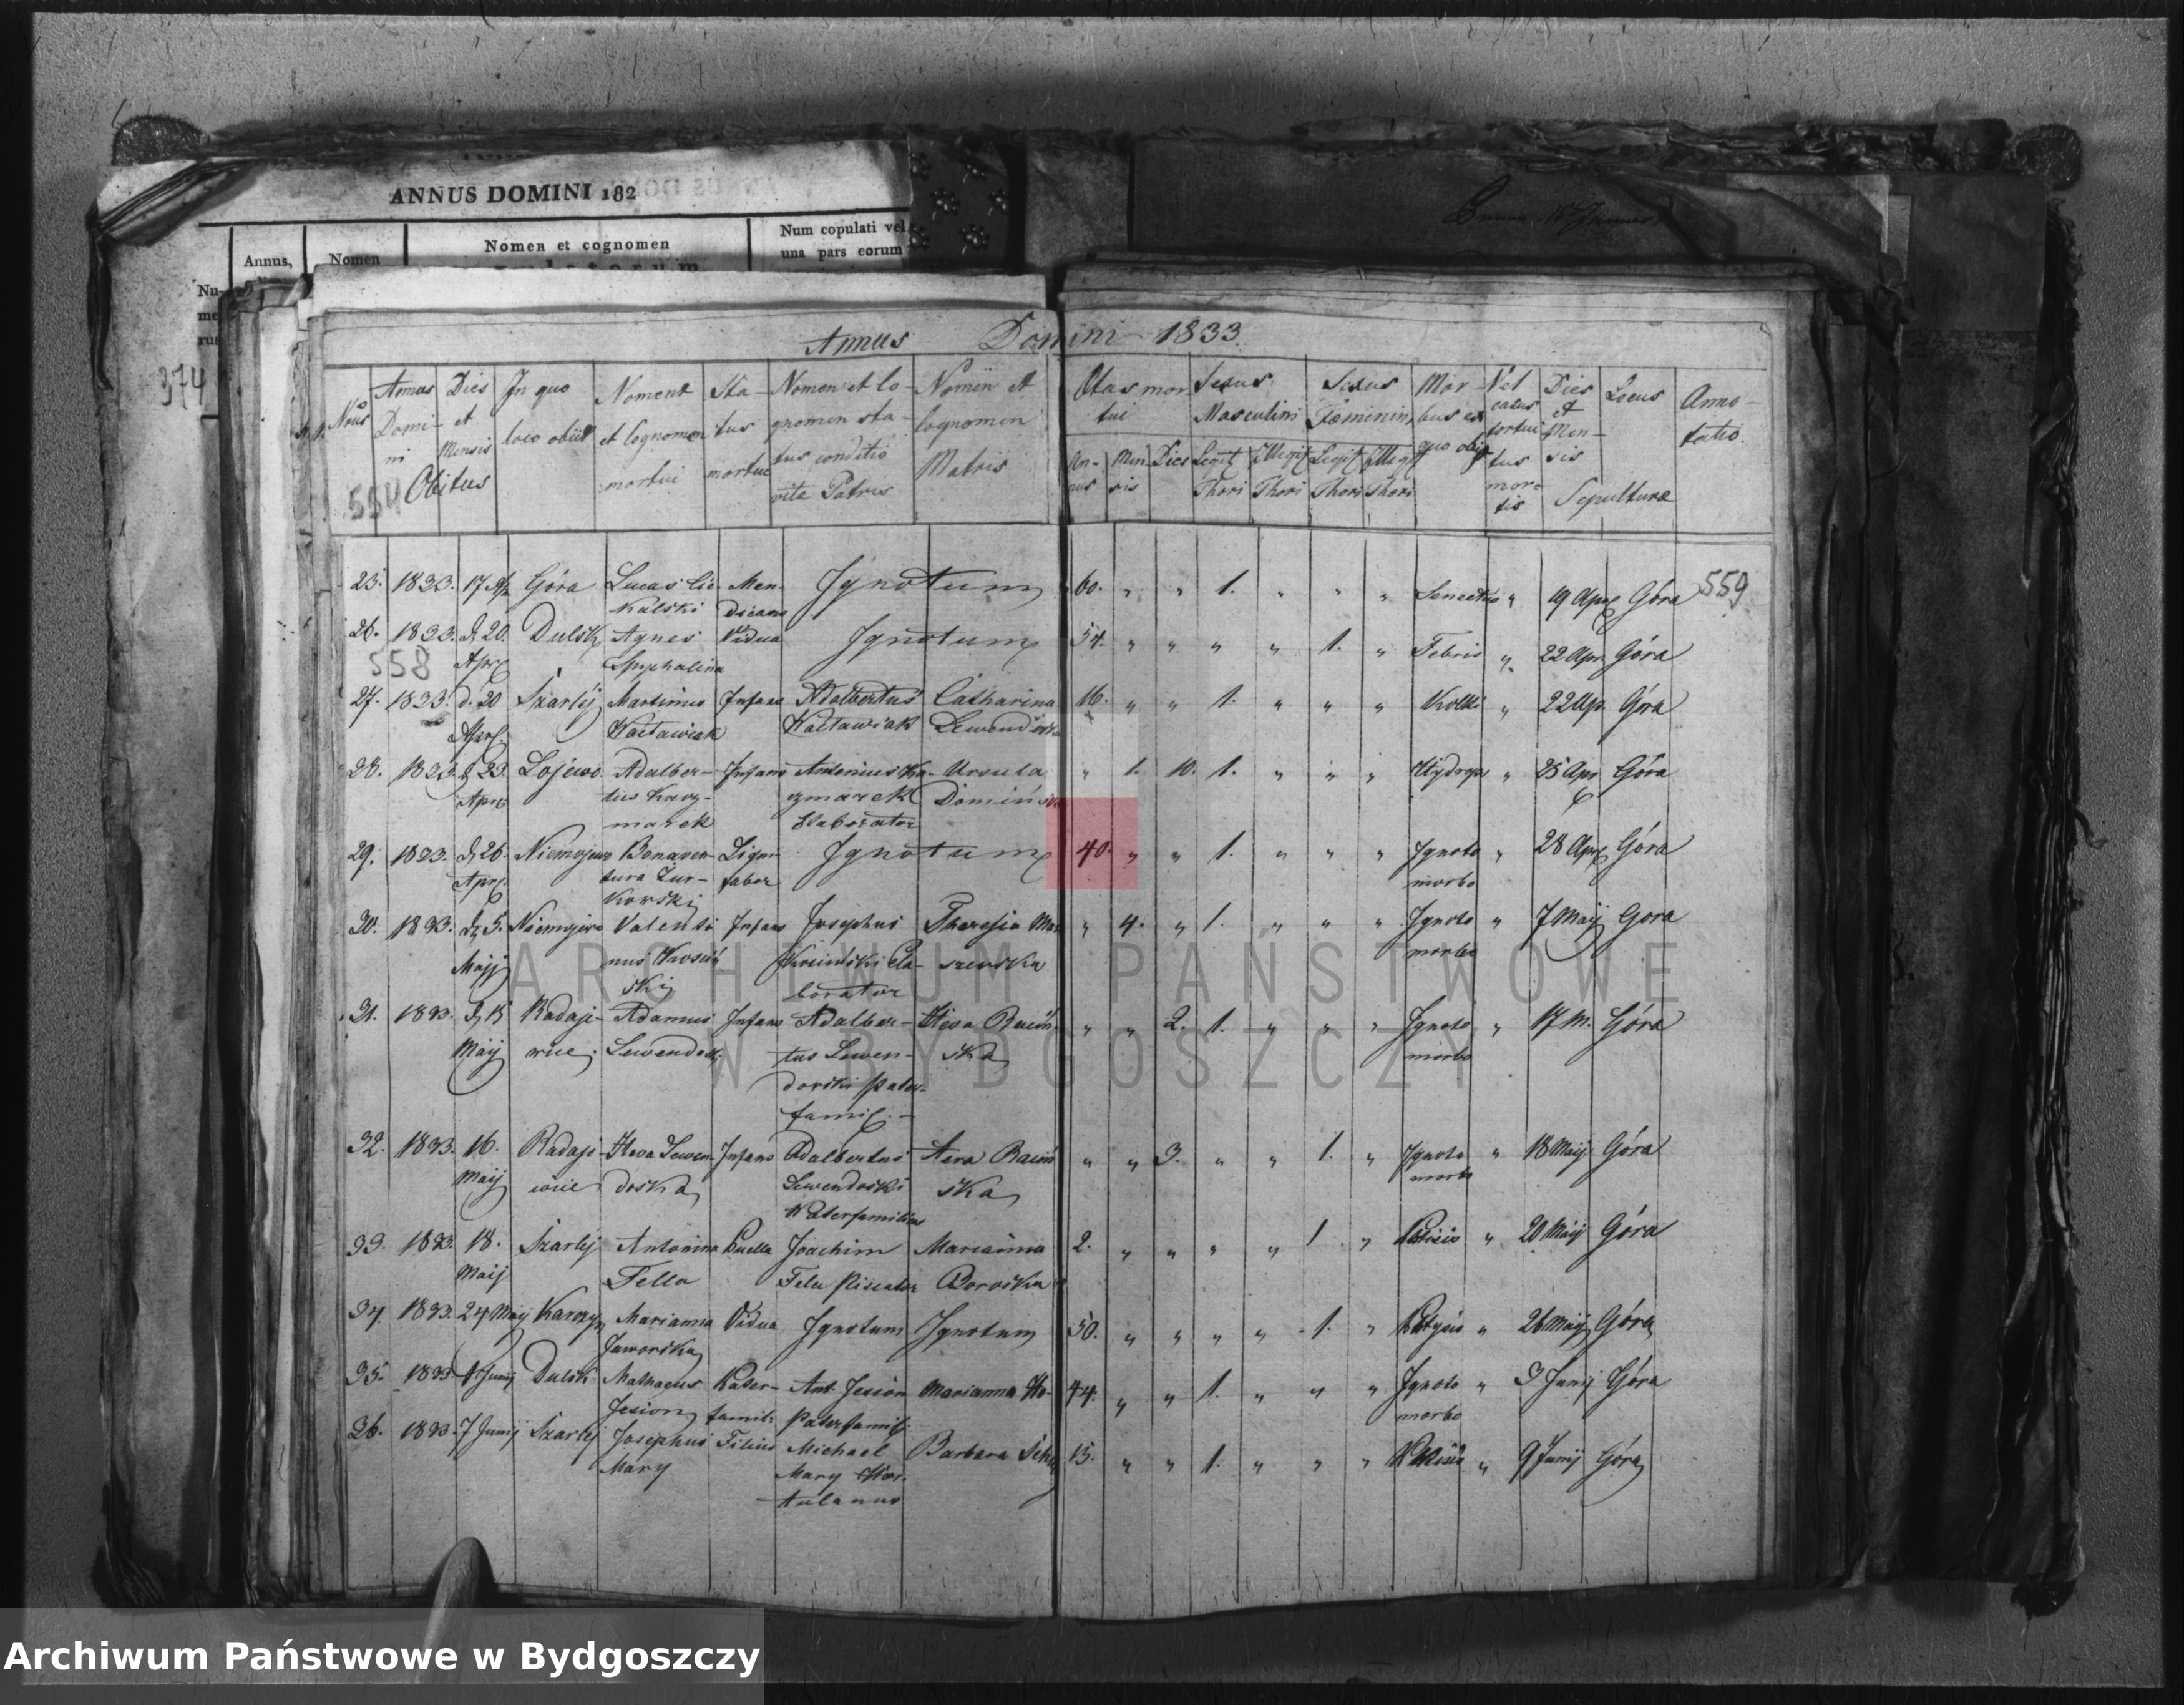 ANNUS DOMINI 182
Num copulati vel
Nomen et cognomen
una pars eorum
Annus,
Nomen
Nu-
me
rus
374
Annus Domini 1833.
Nrus
Annus Domini
Dies et Mensis
Obitus
In quo loco obiit
Nomen et Cognomen mortui
Status mortui
Nomen et Cognomen status conditio vitæ Patris
Nomen et Cognomen Matris
Ætas mortui
Annus
Mensis
Dies
Sexus Masculini
Legit Thori
Illegit Thori
Sexus Feminini
Legit Thori
Illegit Thori
Morbus ex quo obiit
Vel casus fortuitus mortis
Dies et Mensis
Locus
Sepulturæ
Annotatio.
554
25. 1833. 17 Ap. Góra Lucas Cie- Men- Ignotum 60. " " 1. " " " " 19 Apr Góra 559
kalski dicans
26. 1833. d. 20. Dulsk Agnes Vidua Ignotum 54. " " " " 1. " Febris " 22 Apr. Góra
558 Apr.
27. 1833. d. 20 Szarlej Martinus Infans Adalbertus Catharina 16. " " 1. " " " " 22 Ap. Góra
Apr.
28. 1833. d. 23. Lojewo Adalber- Infans Antonius Ka- Ursula " 1. 10. 1. " " " Hydrops " 25 Apr Góra
Apr. tus Kacz- czmarek
marek
29. 1833. d. 26. Niemojewo Bonaven- Ligni- Ignotum 40. " " 1. " " " Ignoto " 28 Apr. Góra
Apr. tura Żur- faber morbo
kowski
30. 1833. d. 5. Niemojewo Valenti- Infans Josephus Theresia " 4. " 1. " " " Ignoto " 7 Maij Gora
Maij nus morbo
ski
31. 1833. d. 15 Radaje- Adamus Infans Adalber- Heva " " 2. 1. " " " Ignoto " 17 M. Góra
Maij wice tus Lewen- ska morbo
doski pater-
famil.
32. 1833. 16. Radaje- Heva Lewen- Infans Adalbertus " " 3. " " 1. " Ignoto " 18 Maij Góra
Maij wice doska Lewendoski ska morbo
Paterfamilias
33. 1833. 18. Szarlej Antonina Puella Joachim Marianna 2. " " " " 1 " " 20 Maij Góra
Maij Fella Piscator
34. 1833. 24 Maij Karczyn Marianna Vidua Ignotum Ignotum 50. " " " " 1. " " 26 Maij Góra
Jaworska
35. 1833. 1 Junij Dulsk Mathaeus Pater- Ant. Jesion Marianna 44. " " 1. " " " Ignoto " 3 Junij Góra
Jesion famili Paterfamili morbo
36. 1833. 7 Junij Szarlej Josephus Filius Michael Barbara 15. " " 1. " " " " 9 Junij Góra
Mary Mary Hor-
tulanus
ARCHIWUM PAŃSTWOWE
W BYDGOSZCZY
Archiwum Państwowe w Bydgoszczy